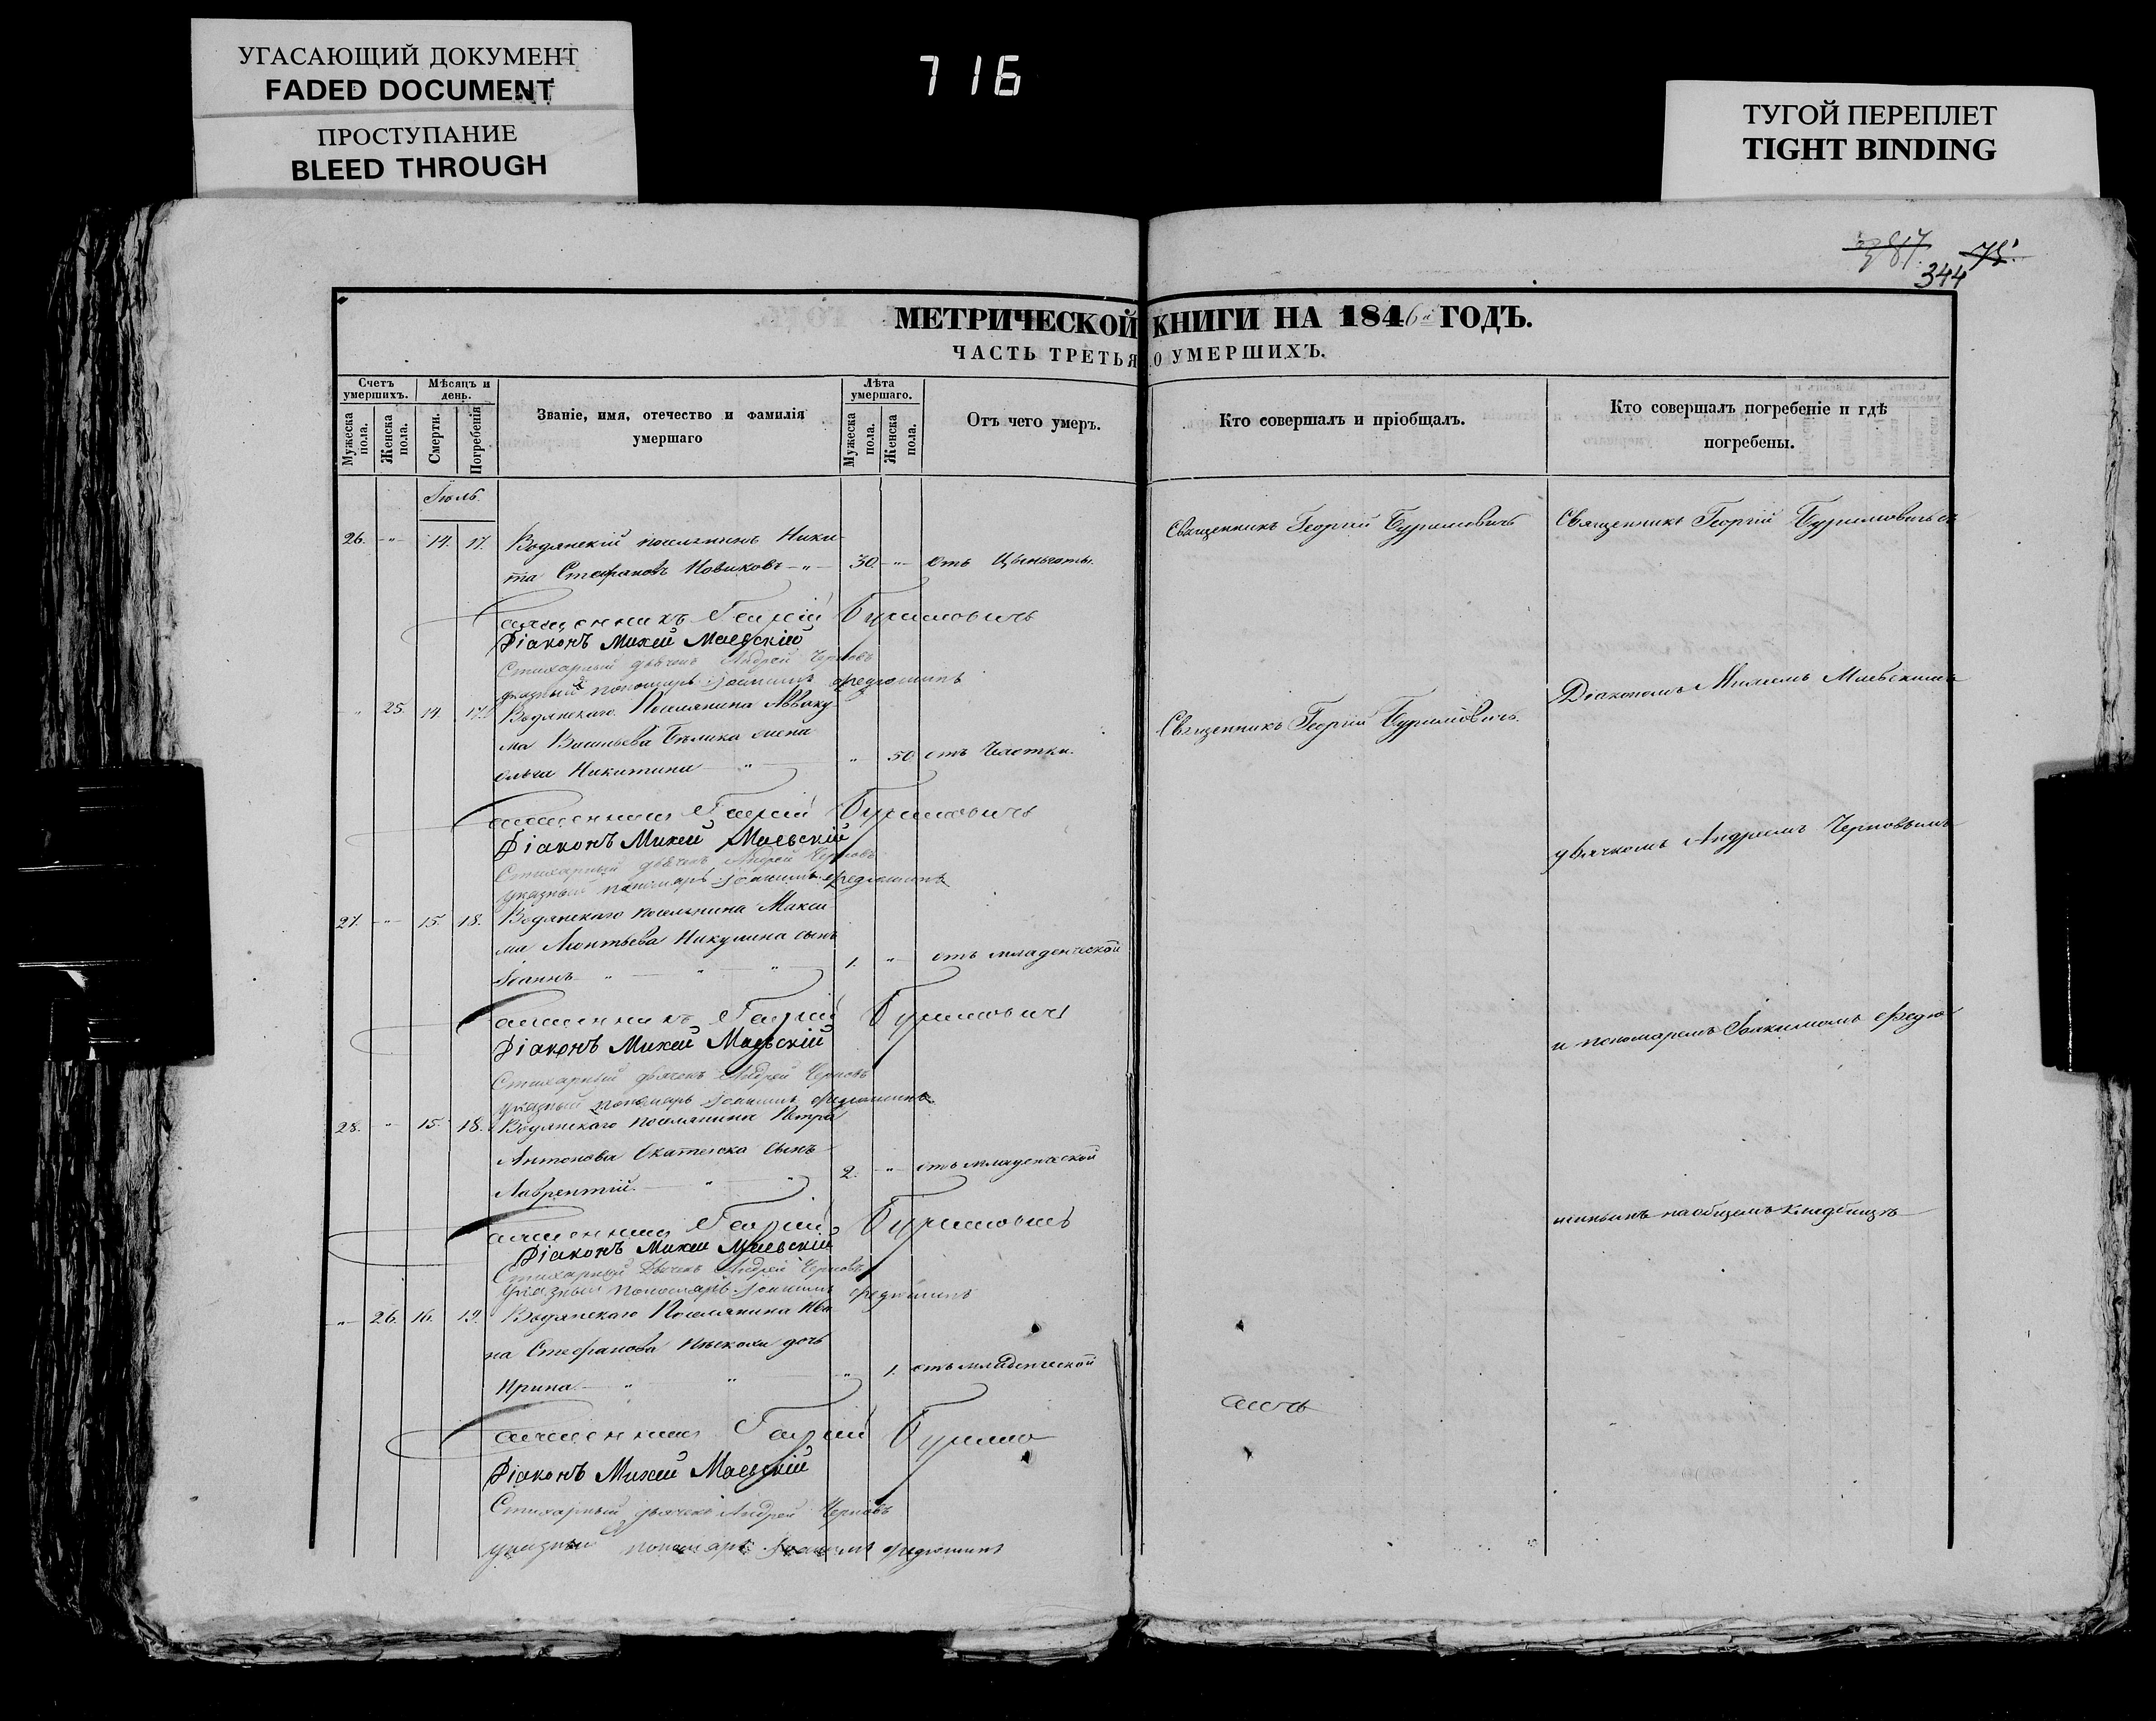 УГАСАЮЩИЙ ДОКУМЕНТ
FADED DOCUMENT
ПРОСТУПАНИЕ
BLEED THROUGH
716
ТУГОЙ ПЕРЕПЛЕТ
TIGHT BINDING
344
МЕТРИЧЕСКОЙ КНИГИ НА 1846й ГОДЪ.
ЧАСТЬ ТРЕТЬЯ О УМЕРШИХЪ.
Счетъ умершихъ.
Мѣсяцъ и день.
Званіе, имя, отечество и фамилія умершаго
Лѣта умершаго.
Отъ чего умеръ.
Кто совершалъ и пріобщалъ.
Кто совершалъ погребеніе и гдѣ погребены.
Мужеска пола.
Женска пола.
Смерти.
Погребенія
Мужеска пола.
Женска пола.
Іюль
26. 14. 17. Водянскій поселянинъ Ники-
та Стефановъ Новиковъ 30. отъ Цынготы.
Священникъ Георгій Буримовичъ
Священникъ Георгій Буримовичъ съ
Священникъ Георгій Буримовичъ
Діаконъ Михей Маевскій
Стихарный дьячекъ Андрей Черновъ
указный пономарь Іоакимъ Федюшинъ
25. 14. 17. Водянскаго Поселянина Аввоку-
ма Васильева жена
Никитина 50 отъ Чахотки.
Священникъ Георгій Буримовичъ.
Діакономъ Михеемъ Маевскимъ
Священникъ Георгій Буримовичъ
Діаконъ Михей Маевскій
Стихарный дьячекъ Андрей Черновъ
указный пономарь Іоакимъ Федюшинъ
дьячкомъ Андреемъ Черновымъ
27. 15. 18. Водянскаго поселянина Макси-
ма Леонтьева Никулина сынъ
Іоаннъ 1. отъ младенческой
Священникъ Георгій Буримовичъ
Діаконъ Михей Маевскій
Стихарный дьячекъ Андрей Черновъ
указный пономарь Іоакимъ Федюшинъ
и пономаремъ Іоакимомъ Федю-
28. 15. 18. Водянскаго поселянина Петра
Антонова сынъ
Лаврентій 2. отъ младенческой
Священникъ Георгій Буримовичъ
Діаконъ Михей Маевскій
Стихарный дьячекъ Андрей Черновъ
указный пономарь Іоакимъ Федюшинъ
шинымъ на общемъ кладбищѣ
26. 16. 19. Водянскаго Поселянина Ива-
на Стефанова дочь
Ирина 1. отъ младенческой
Священникъ Георгій Буримо
Діаконъ Михей Маевскій
Стихарный дьячекъ Андрей Черновъ
указный пономарь Іоакимъ Федюшинъ